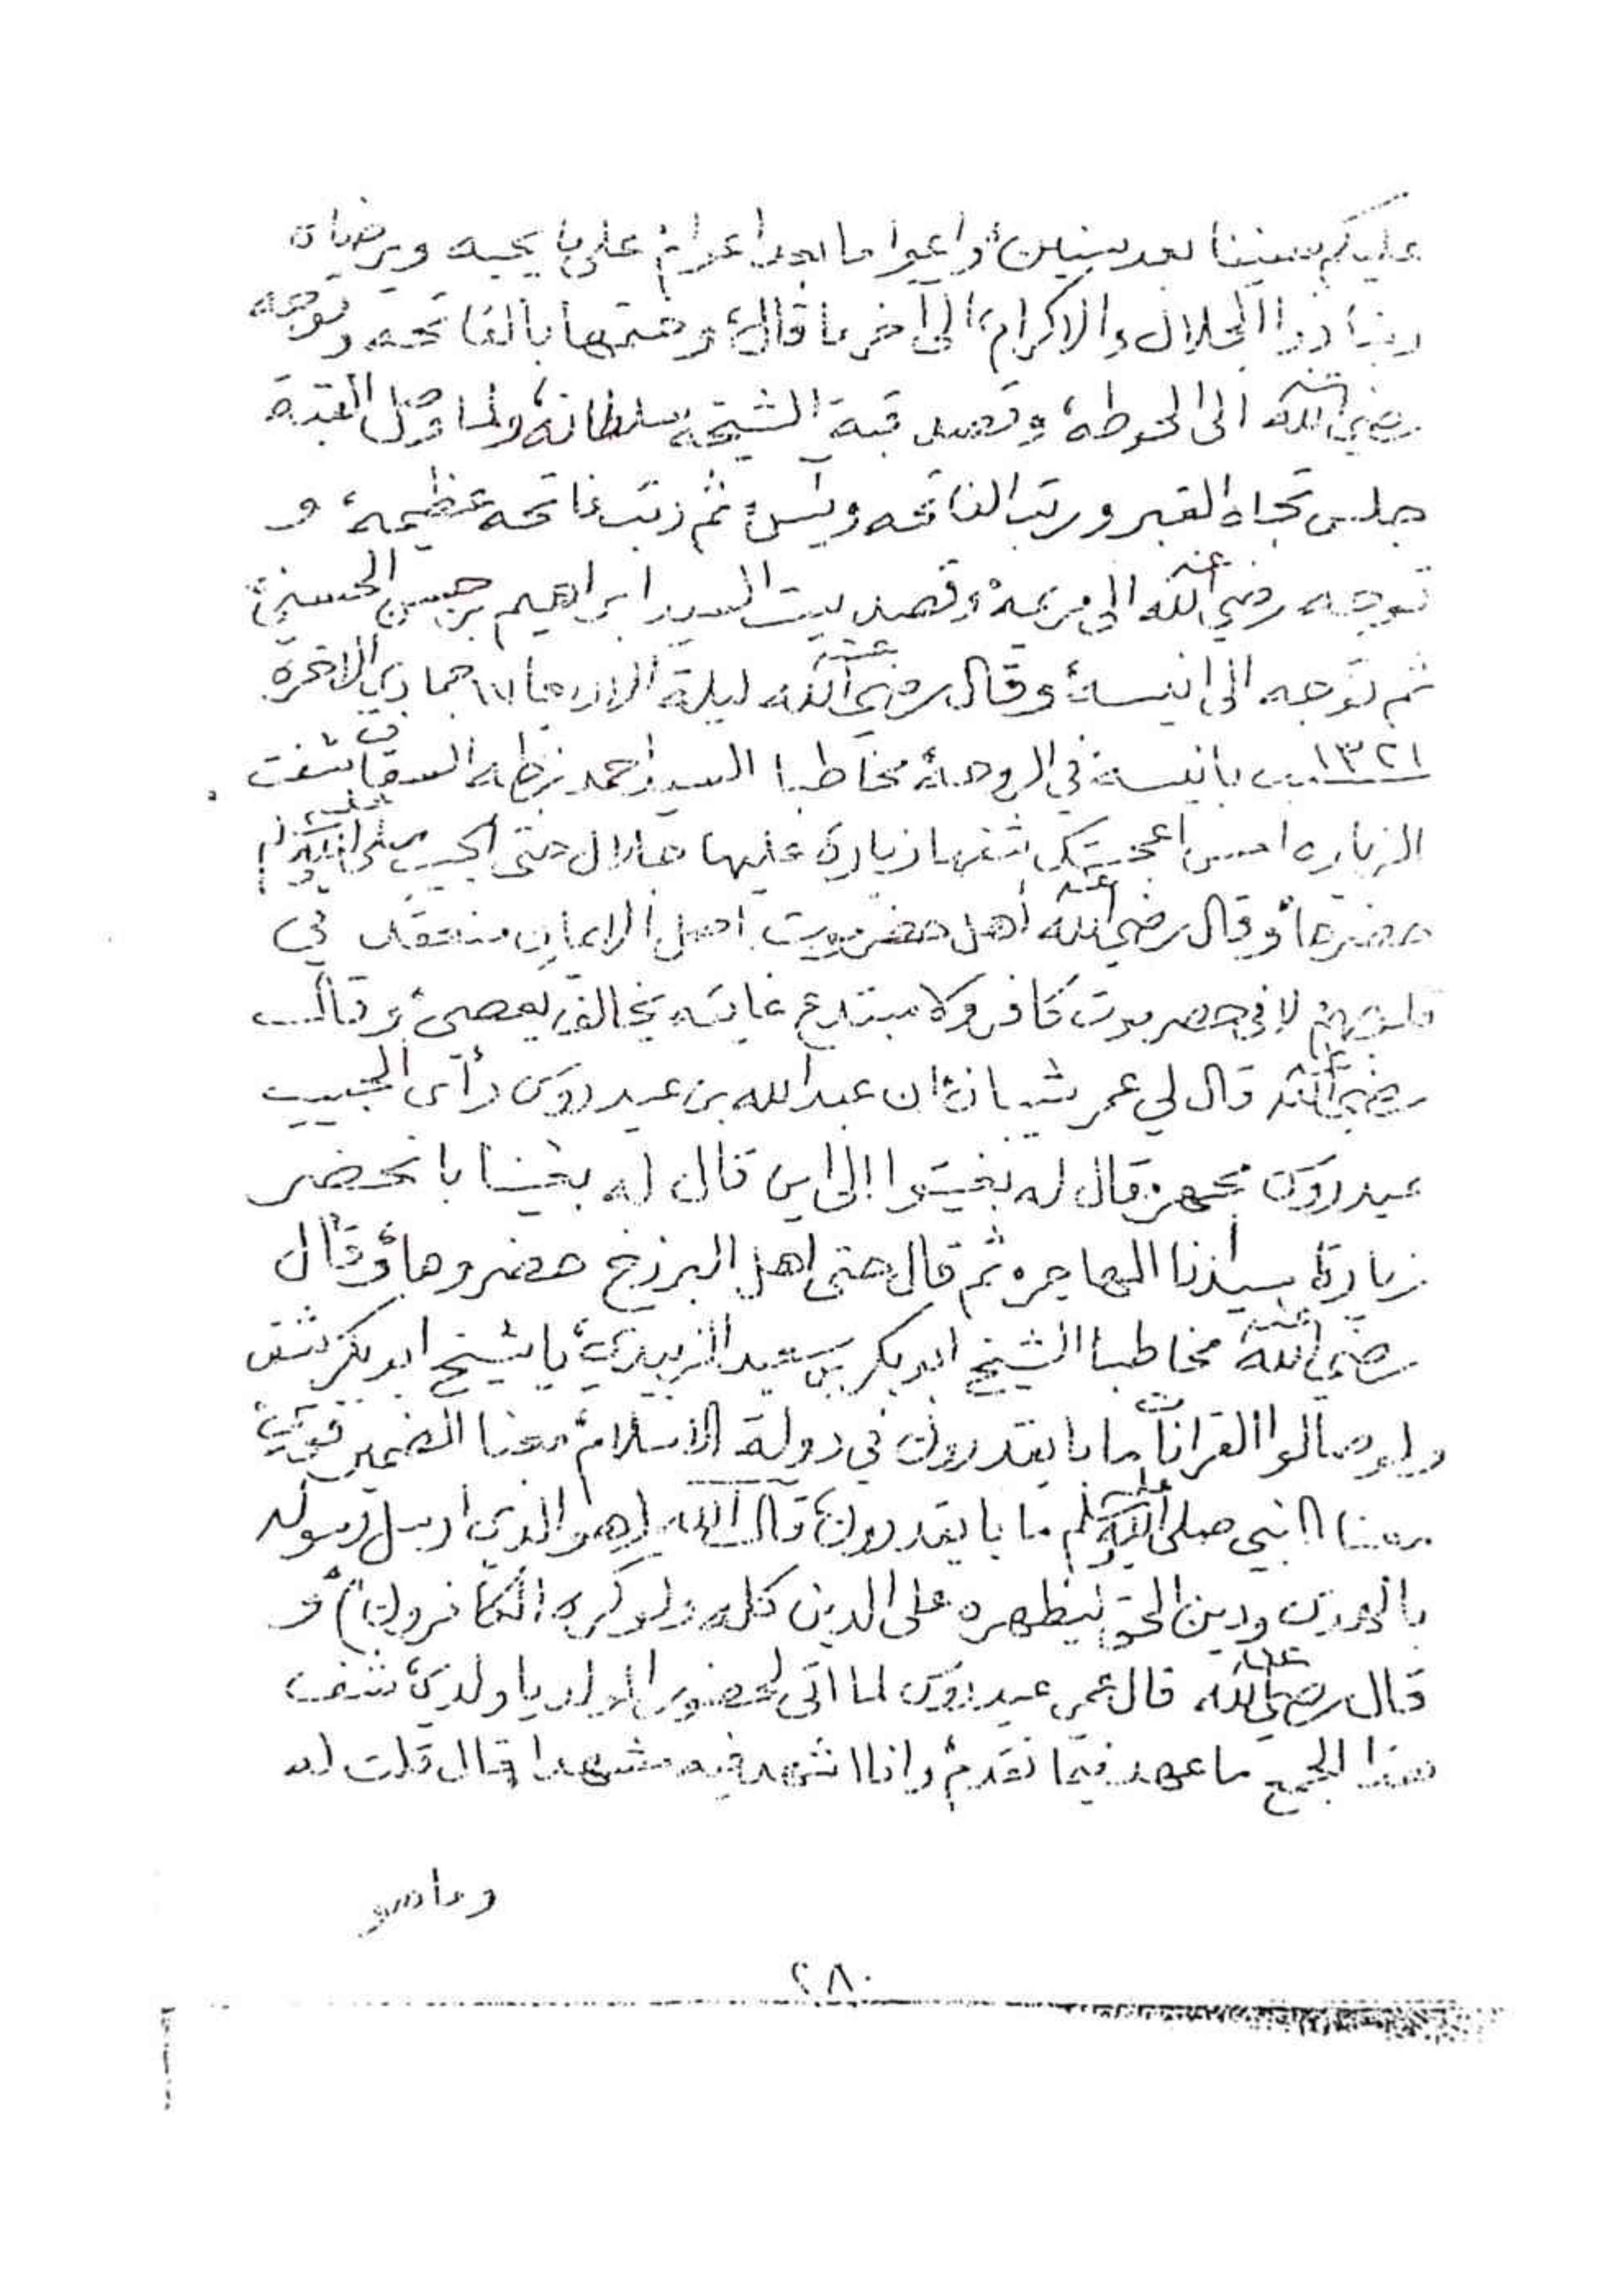 عليكم سنينا بعد سنين، واعوا ما بعدا عوام على ما يحبه ويرضاه
ربنا ذوا الجلال والاكرام، الى آخر ما قال، وختمها بالفاتحه وتوجه
رضي الله عنه الى الحوطه، وقصد قبة الشيخة سلطانه، ولما دخل القبة
جلس تجاه القبر ورتب الفاتحه ويس، ثم رتب فاتحه عظيمه، و
توجه رضي الله عنه الى مريمه، وقصد بيت السيد ابراهيم بن حسن الحسني،
ثم توجه الى انيسة، وقال رضي الله عنه ليلة الاربعاء ١٧ جمادي الاخرة
١٣٢١ بانيسة في الروحة، مخاطبا السيد احمد بن طه السقاف شفت
الزياره امس اعجبتك شفها زيارة عليها جلال حتى الحبيب صلى الله عليه وسلم
حضرها، وقال رضي الله عنه أهل حضرموت اهل الايمان منعقد في
قلوبهم لا في حضرموت كافر ولا مبتدع غايته يخالف يعصى، وقال
رضي الله عنه قال لي عمر شيبان، ان عبد الله بن عيدروس رأى الحبيب
عيدروس مجهر، قال له بغيتوا الى اين قال له بغينا با نحضر
زيارة سيدنا المهاجر، ثم قال حتى اهل البرزخ حضروها، وقال
رضي الله عنه مخاطبا الشيخ ابو بكر بن سعيد الزبيدي، يا شيخ ابو بكر شف
ولو صالوا القرانات ما با يقدرون في دولة الاسلام، معنا الضمير قوي،
معنا النبي صلى الله عليه وسلم ما با يقدرون، قال الله (هو الذي ارسل رسوله
بالهدى ودين الحق ليظهره على الدين كله ولو كره الكافرون) و
قال رضي الله عنه قال عمي عيدروس لما اتى لحضور المولد يا ولدي، شفت
هذا الجمع ما عهد فيما تقدم، وانا اشهد فيه مشهدا قال قلت له
وما هو
٢٨٠